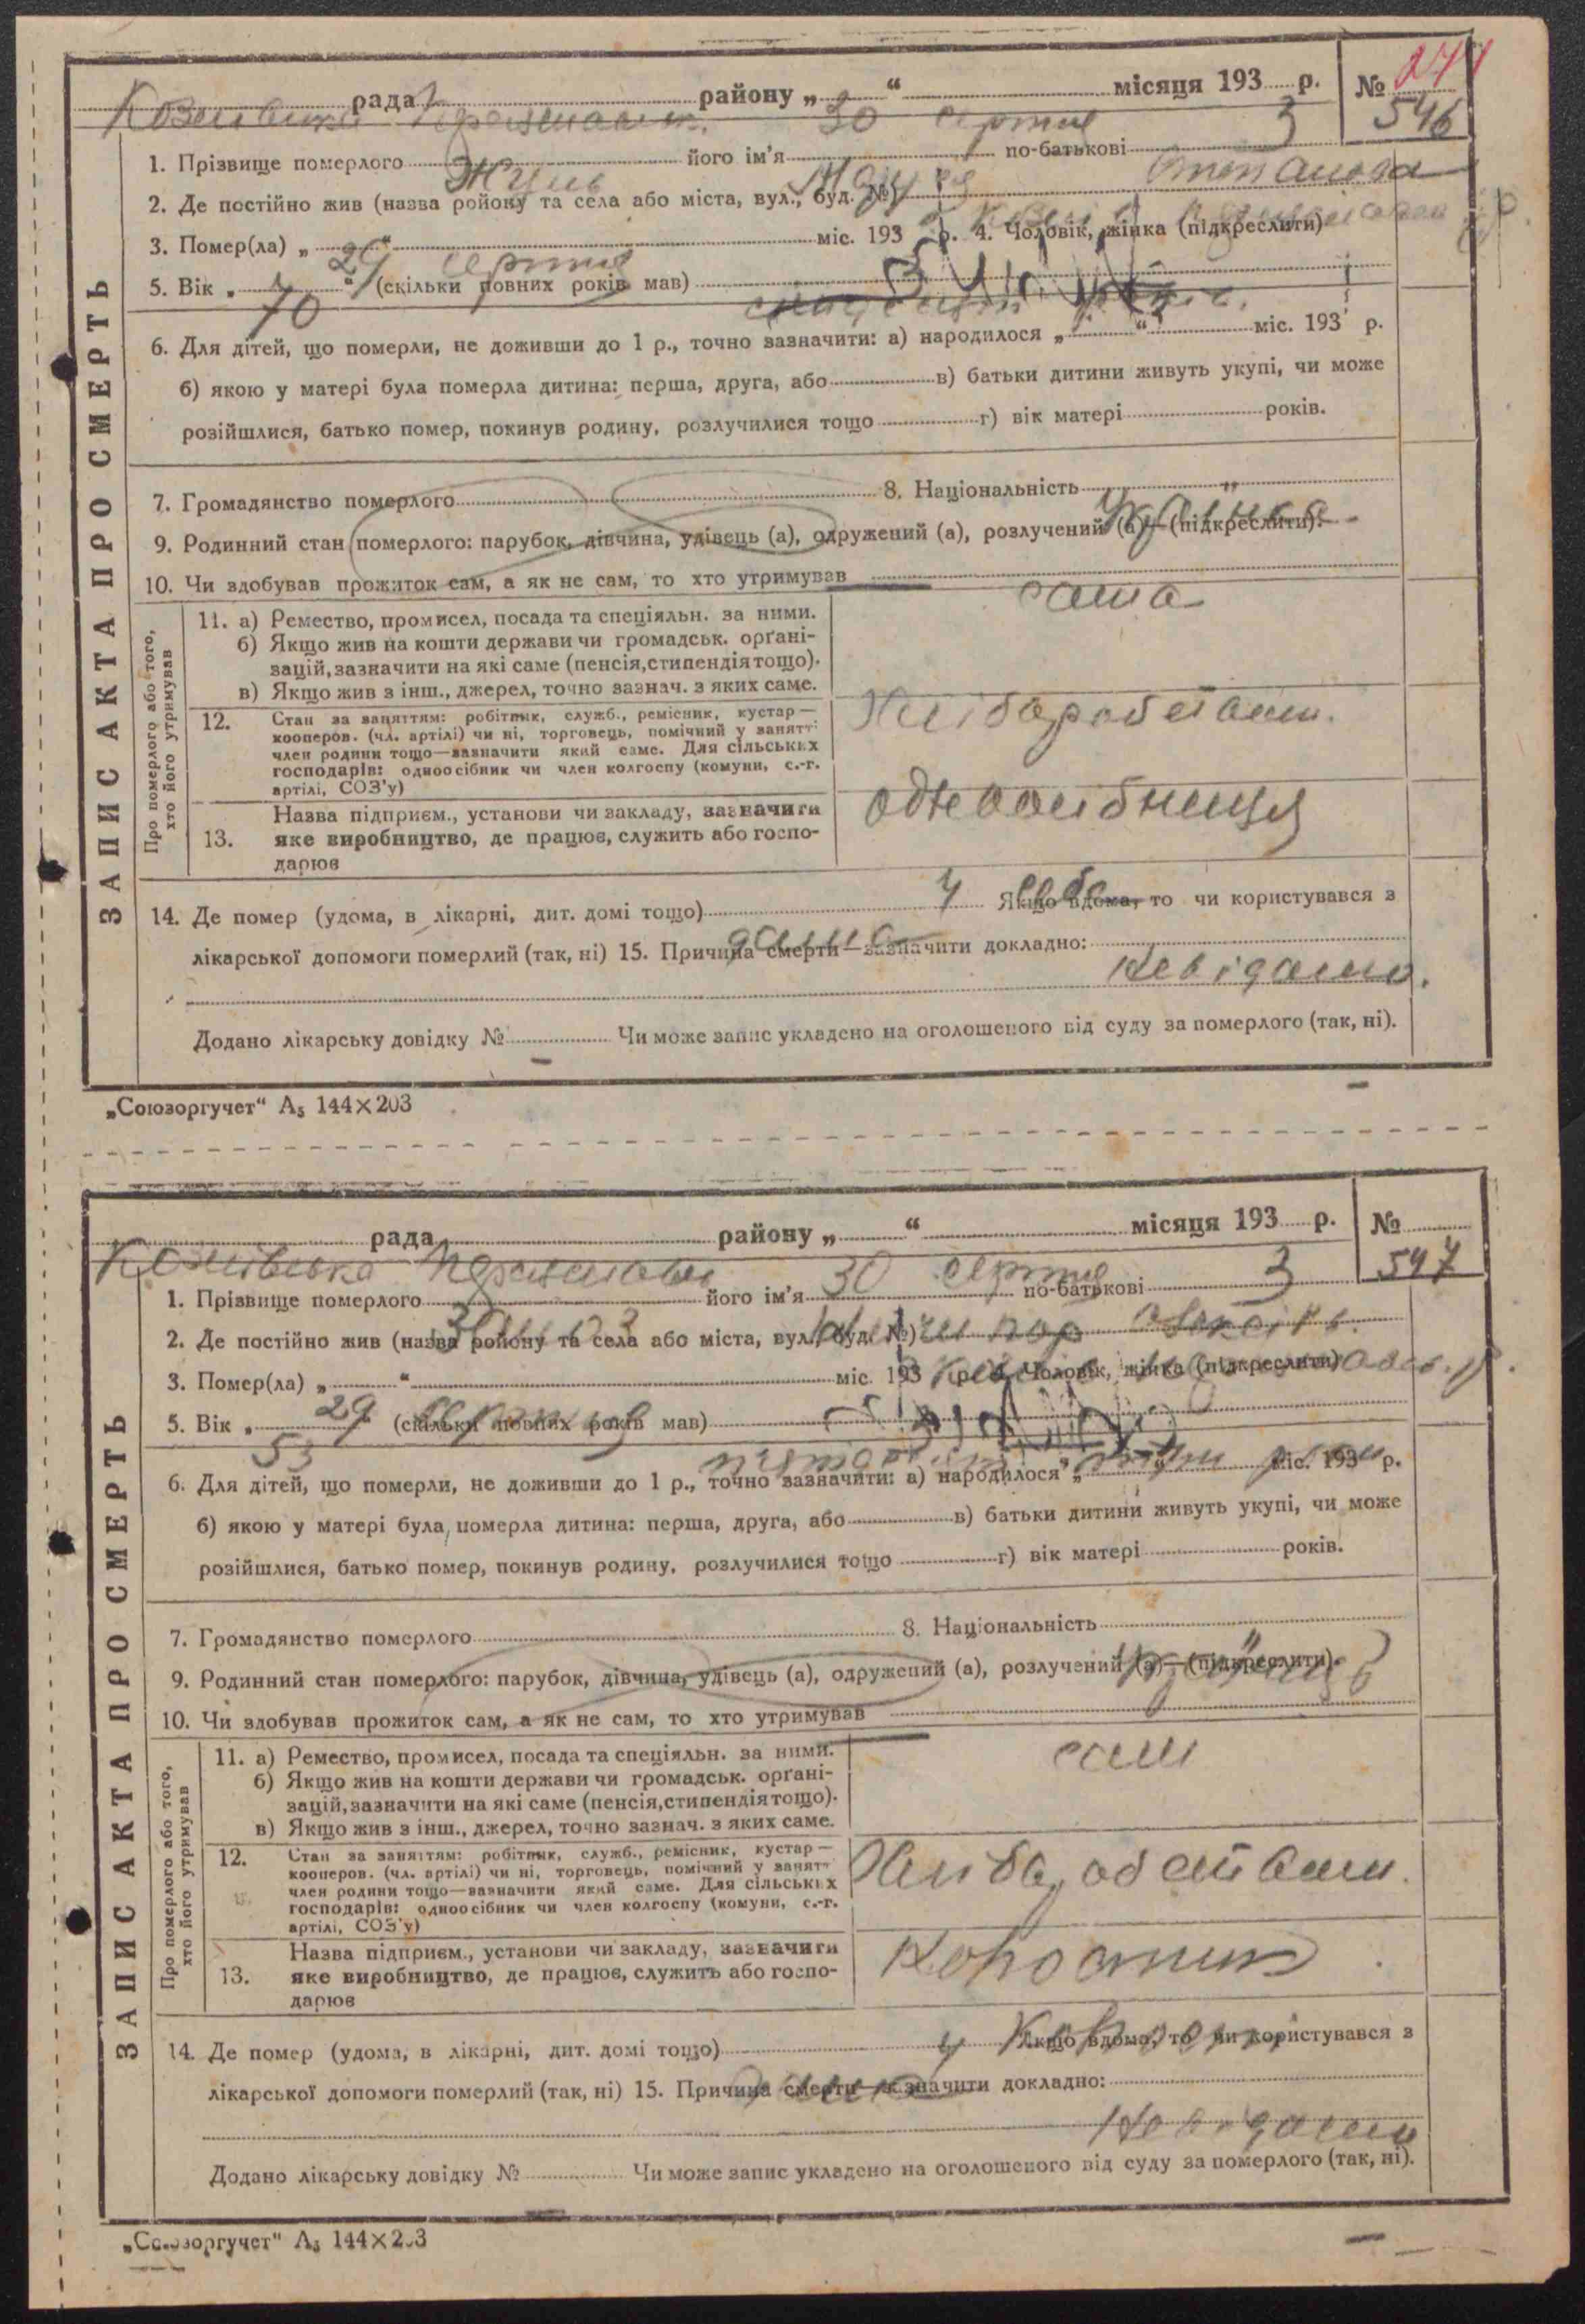 274
рада району „ “ місяця 193 р. №
30 серпня 3 546
1. Прізвище померлого його ім'я по-батькові
Жуль Степанова
2. Де постійно жив (назва ройону та села або міста, вул., буд. №)
3. Помер(ла) „ “ міс. 193 р. 4. Чоловік, жінка (підкреслити)
29 серпня 3
5. Вік „ “ (скільки повних років мав)
70 сімдесят
6. Для дітей, що померли, не доживши до 1 р., точно зазначити: а) народилося „ “ міс. 193 р.
б) якою у матері була померла дитина: перша, друга, або в) батьки дитини живуть укупі, чи може
розійшлися, батько помер, покинув родину, розлучилися тощо г) вік матері років.
7. Громадянство померлого 8. Національність „
Українка
9. Родинний стан померлого: парубок, дівчина, удівець (а), одружений (а), розлучений (а) — (підкреслити).
10. Чи здобував прожиток сам, а як не сам, то хто утримував
сама
11. а) Ремество, промисел, посада та спеціяльн. за ними.
б) Якщо жив на кошти держави чи громадськ. орґані-
зацій, зазначити на які саме (пенсія, стипендія тощо).
в) Якщо жив з інш., джерел, точно зазнач. з яких саме.
Хліборобством.
12. Стан за заняттям: робітник, служб., ремісник, кустар—
кооперов. (чл. артілі) чи ні, торговець, помічний у занятт.
член родини тощо—зазначити який саме. Для сільських
господарів: одноосібник чи член колгоспу (комуни, с.-г.
артілі, СОЗ'у)
одноосібниця
13. Назва підприєм., установи чи закладу, зазначити
яке виробництво, де працює, служить або госпо-
дарює
Про померлого або того,
хто його утримував
ЗАПИС АКТА ПРО СМЕРТЬ
у себе
14. Де помер (удома, в лікарні, дит. домі тощо) Якщо вдома, то чи користувався з
дома
лікарської допомоги померлий (так, ні) 15. Причина смерти—зазначити докладно:
Невідомо.
Додано лікарську довідку № Чи може запис укладено на оголошеного від суду за померлого (так, ні).
„Союзоргучет“ А₅ 144×203
рада району „ “ місяця 193 р. №
30 серпня 3 547
1. Прізвище померлого його ім'я по-батькові
2. Де постійно жив (назва ройону та села або міста, вул., буд. №)
3. Помер(ла) „ “ міс. 193 р. 4. Чоловік, жінка (підкреслити)
29 серпня 3
5. Вік „ “ (скільки повних років мав)
53 пятдесят три роки
6. Для дітей, що померли, не доживши до 1 р., точно зазначити: а) народилося „ “ міс. 193 р.
б) якою у матері була померла дитина: перша, друга, або в) батьки дитини живуть укупі, чи може
розійшлися, батько помер, покинув родину, розлучилися тощо г) вік матері років.
7. Громадянство померлого 8. Національність „
9. Родинний стан померлого: парубок, дівчина, удівець (а), одружений (а), розлучений (а) — (підкреслити).
10. Чи здобував прожиток сам, а як не сам, то хто утримував
сам
11. а) Ремество, промисел, посада та спеціяльн. за ними.
б) Якщо жив на кошти держави чи громадськ. орґані-
зацій, зазначити на які саме (пенсія, стипендія тощо).
в) Якщо жив з інш., джерел, точно зазнач. з яких саме.
Хліборобством.
12. Стан за заняттям: робітник, служб., ремісник, кустар—
кооперов. (чл. артілі) чи ні, торговець, помічний у занятт.
член родини тощо—зазначити який саме. Для сільських
господарів: одноосібник чи член колгоспу (комуни, с.-г.
артілі, СОЗ'у)
13. Назва підприєм., установи чи закладу, зазначити
яке виробництво, де працює, служить або госпо-
дарює
Про померлого або того,
хто його утримував
ЗАПИС АКТА ПРО СМЕРТЬ
14. Де помер (удома, в лікарні, дит. домі тощо) Якщо вдома, то чи користувався з
лікарської допомоги померлий (так, ні) 15. Причина смерти—зазначити докладно:
Невідомо
Додано лікарську довідку № Чи може запис укладено на оголошеного від суду за померлого (так, ні).
„Союзоргучет“ А₅ 144×203